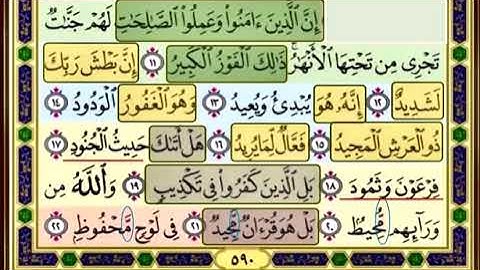 إِنَّ ٱلَّذِينَ ءَامَنُوا۟ وَعَمِلُوا۟ ٱلصَّٰلِحَٰتِ لَهُمْ جَنَّٰتٌ
تَجْرِى مِن تَحْتِهَا ٱلْأَنْهَٰرُ ۚ ذَٰلِكَ ٱلْفَوْزُ ٱلْكَبِيرُ ١١ إِنَّ بَطْشَ رَبِّكَ
لَشَدِيدٌ ١٢ إِنَّهُۥ هُوَ يُبْدِئُ وَيُعِيدُ ١٣ وَهُوَ ٱلْغَفُورُ ٱلْوَدُودُ ١٤
ذُو ٱلْعَرْشِ ٱلْمَجِيدُ ١٥ فَعَّالٌ لِّمَا يُرِيدُ ١٦ هَلْ أَتَىٰكَ حَدِيثُ ٱلْجُنُودِ ١٧
فِرْعَوْنَ وَثَمُودَ ١٨ بَلِ ٱلَّذِينَ كَفَرُوا۟ فِى تَكْذِيبٍ ١٩ وَٱللَّهُ مِن
وَرَآئِهِم مُّحِيطٌۢ ٢٠ بَلْ هُوَ قُرْءَانٌ مَّجِيدٌ ٢١ فِى لَوْحٍ مَّحْفُوظٍۭ ٢٢
٥٩٠